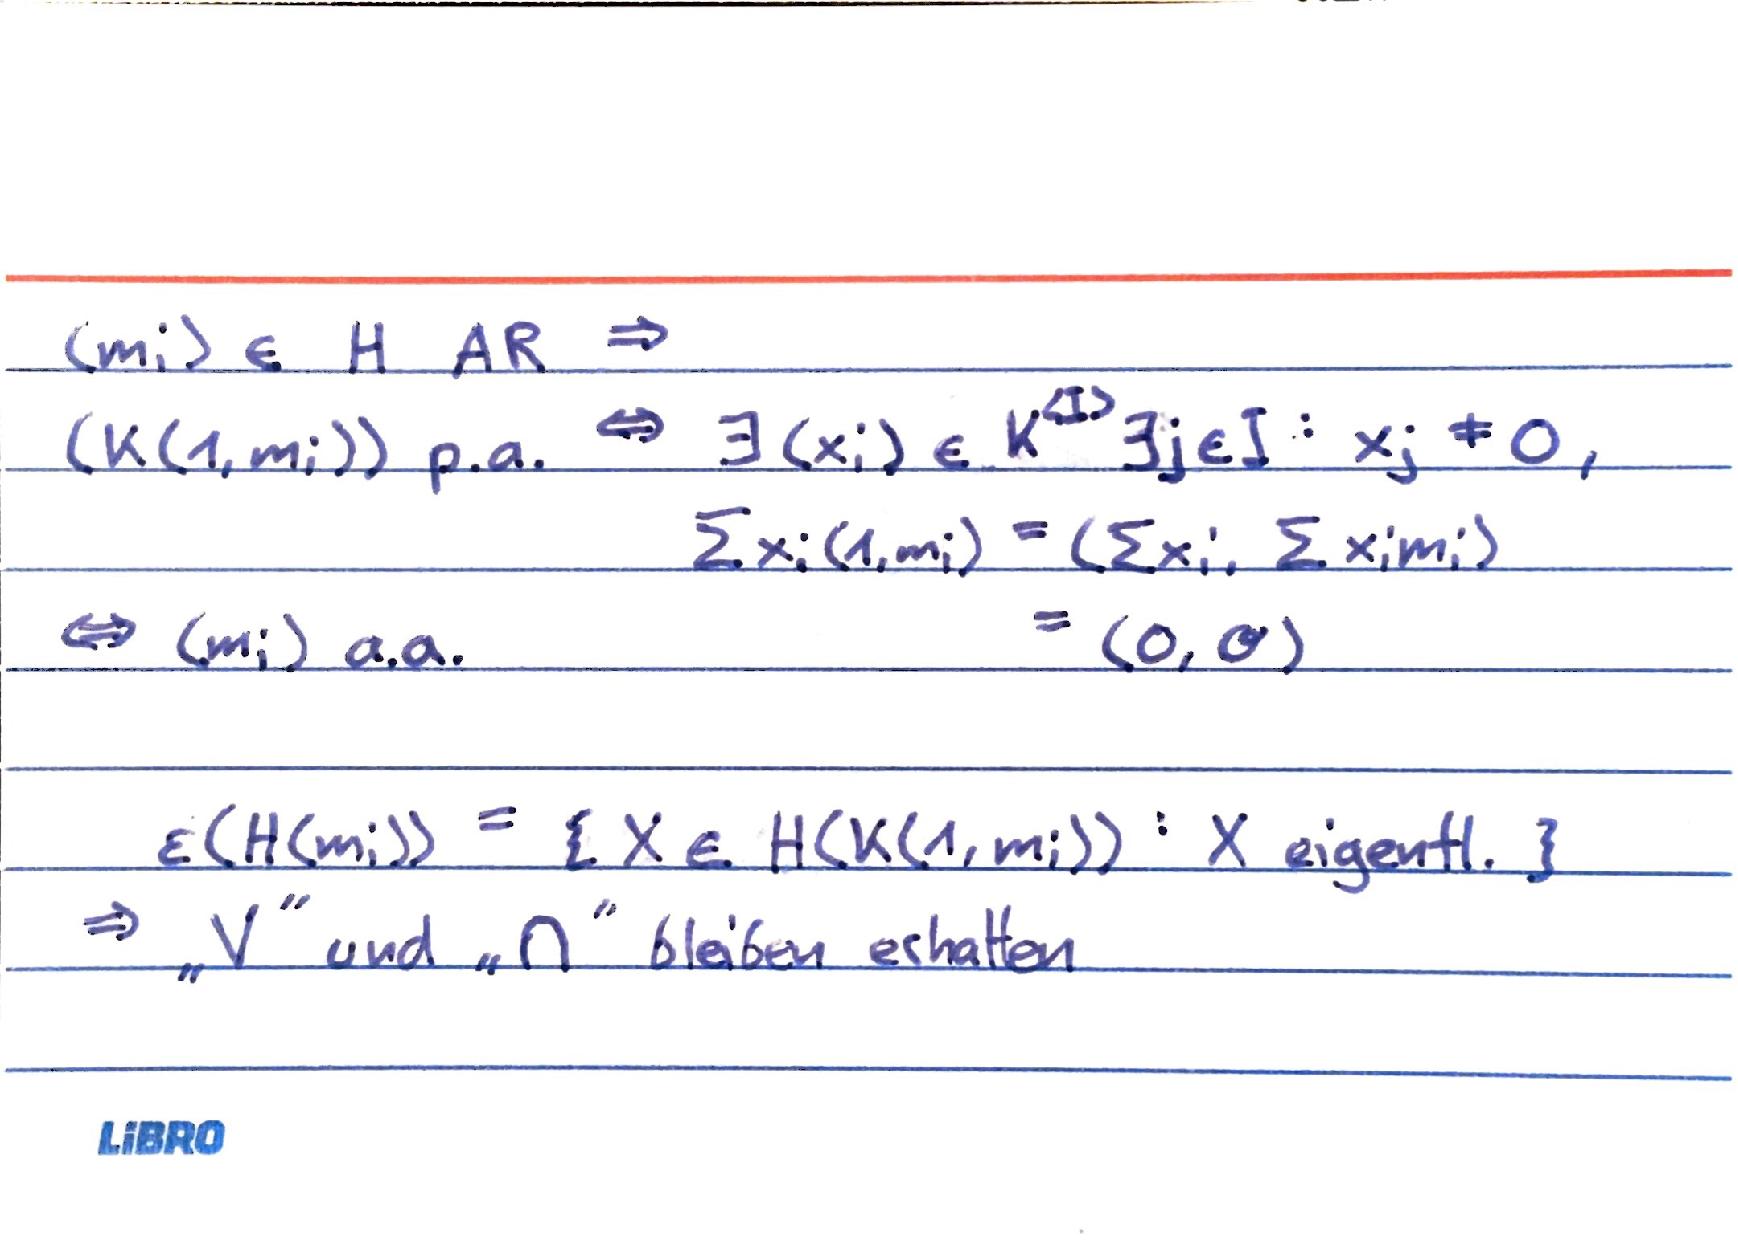 (mᵢ) ∈ H AR ⇒
(K(1,mᵢ)) p.a. ⇔ ∃(xᵢ) ∈ K^<I> ∃j∈I : xⱼ ≠ 0,
Σxᵢ(1,mᵢ) = (Σxᵢ, Σxᵢmᵢ)
⇔ (mᵢ) a.a. = (0, σ)
ε(H(mᵢ)) = { X ∈ H(K(1,mᵢ)) : X eigentl. }
⇒ „V“ und „∩“ bleiben erhalten
LiBRO